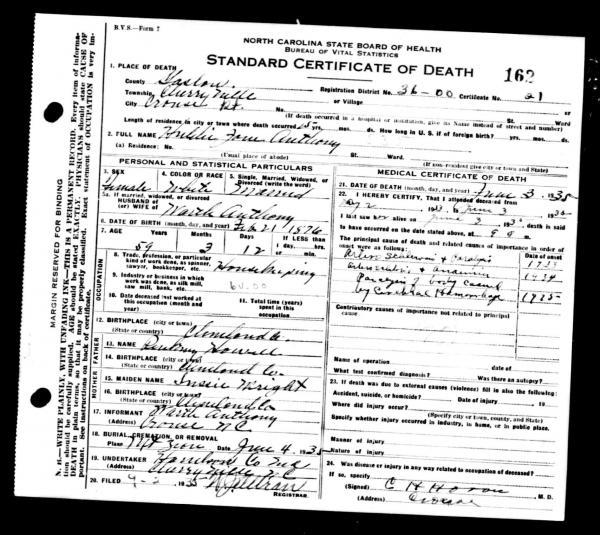 R.V.S.—Form 7
NORTH CAROLINA STATE BOARD OF HEALTH
BUREAU OF VITAL STATISTICS
STANDARD CERTIFICATE OF DEATH
162
1. PLACE OF DEATH
County Gaston
Registration District No. 36-00 Certificate No. 21
Township Cherryville or Village
City Crouse No. St. Ward
(If death occurred in a hospital or institution, give its Name instead of street and number)
Length of residence in city or town where death occurred yrs. mos. ds. How long in U. S. if of foreign birth? yrs. mos. ds.
2. FULL NAME Anthony
(a) Residence: No. St. Ward
(Usual place of abode) (If non-resident give city or town and State)
PERSONAL AND STATISTICAL PARTICULARS
3. SEX Female
4. COLOR OR RACE White
5. Single, Married, Widowed, or Divorced (write the word) Married
5a. If married, widowed, or divorced
HUSBAND of
(or) WIFE of Anthony
6. DATE OF BIRTH (month, day, and year) Feb 21 1876
7. AGE Years Months Days If LESS than 1 day, hrs. or min.
59 3 12
OCCUPATION
8. Trade, profession, or particular kind of work done, as spinner, sawyer, bookkeeper, etc. Housekeeping
9. Industry or business in which work was done, as silk mill, saw mill, bank, etc.
10. Date deceased last worked at this occupation (month and year)
11. Total time (years) spent in this occupation
12. BIRTHPLACE (city or town) Cleveland Co.
(State or country)
FATHER
13. NAME Howell
14. BIRTHPLACE (city or town) Cleveland Co.
(State or country)
MOTHER
15. MAIDEN NAME Wright
16. BIRTHPLACE (city or town) Cleveland Co
(State or country)
17. INFORMANT Anthony
(Address) Crouse N.C.
18. BURIAL, CREMATION, OR REMOVAL
Place Mt Zion Date June 4, 1935
19. UNDERTAKER
(Address) Cherryville N.C.
20. FILED 1935
REGISTRAR.
MEDICAL CERTIFICATE OF DEATH
21. DATE OF DEATH (month, day, and year) June 3, 1935
22. I HEREBY CERTIFY, That I attended deceased from
to June 3, 1935
I last saw her alive on June 3, 1935, death is said
to have occurred on the date stated above, at m.
The principal cause of death and related causes of importance in order of onset were as follows:
Date of onset
by Cerebral Hemorrhage
Contributory causes of importance not related to principal cause
Name of operation Date of
What test confirmed diagnosis? Was there an autopsy?
23. If death was due to external causes (violence) fill in also the following:
Accident, suicide, or homicide? Date of injury 19
Where did injury occur?
(Specify city or town, county, and State)
Specify whether injury occurred in industry, in home, or in public place.
Manner of injury
Nature of injury
24. Was disease or injury in any way related to occupation of deceased?
If so, specify
(Signed) C H Hoover M. D.
(Address) Crouse
MARGIN RESERVED FOR BINDING
N. B.—WRITE PLAINLY, WITH UNFADING INK—THIS IS A PERMANENT RECORD. Every item of information should be carefully supplied. AGE should be stated EXACTLY. PHYSICIANS should state CAUSE OF DEATH in plain terms, so that it may be properly classified. Exact statement of OCCUPATION is very important. See instructions on back of certificate.